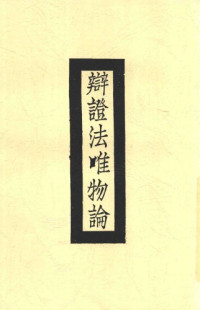 辯證法唯物論